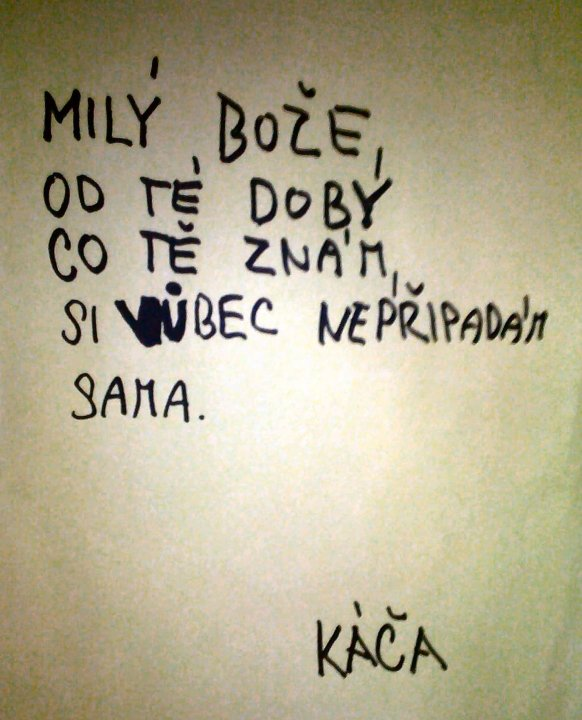 MILÝ BOŽE,
OD TÉ DOBY
CO TĚ ZNÁM,
SI VŮBEC NEPŘIPADÁM
SAMA.
KÁČA